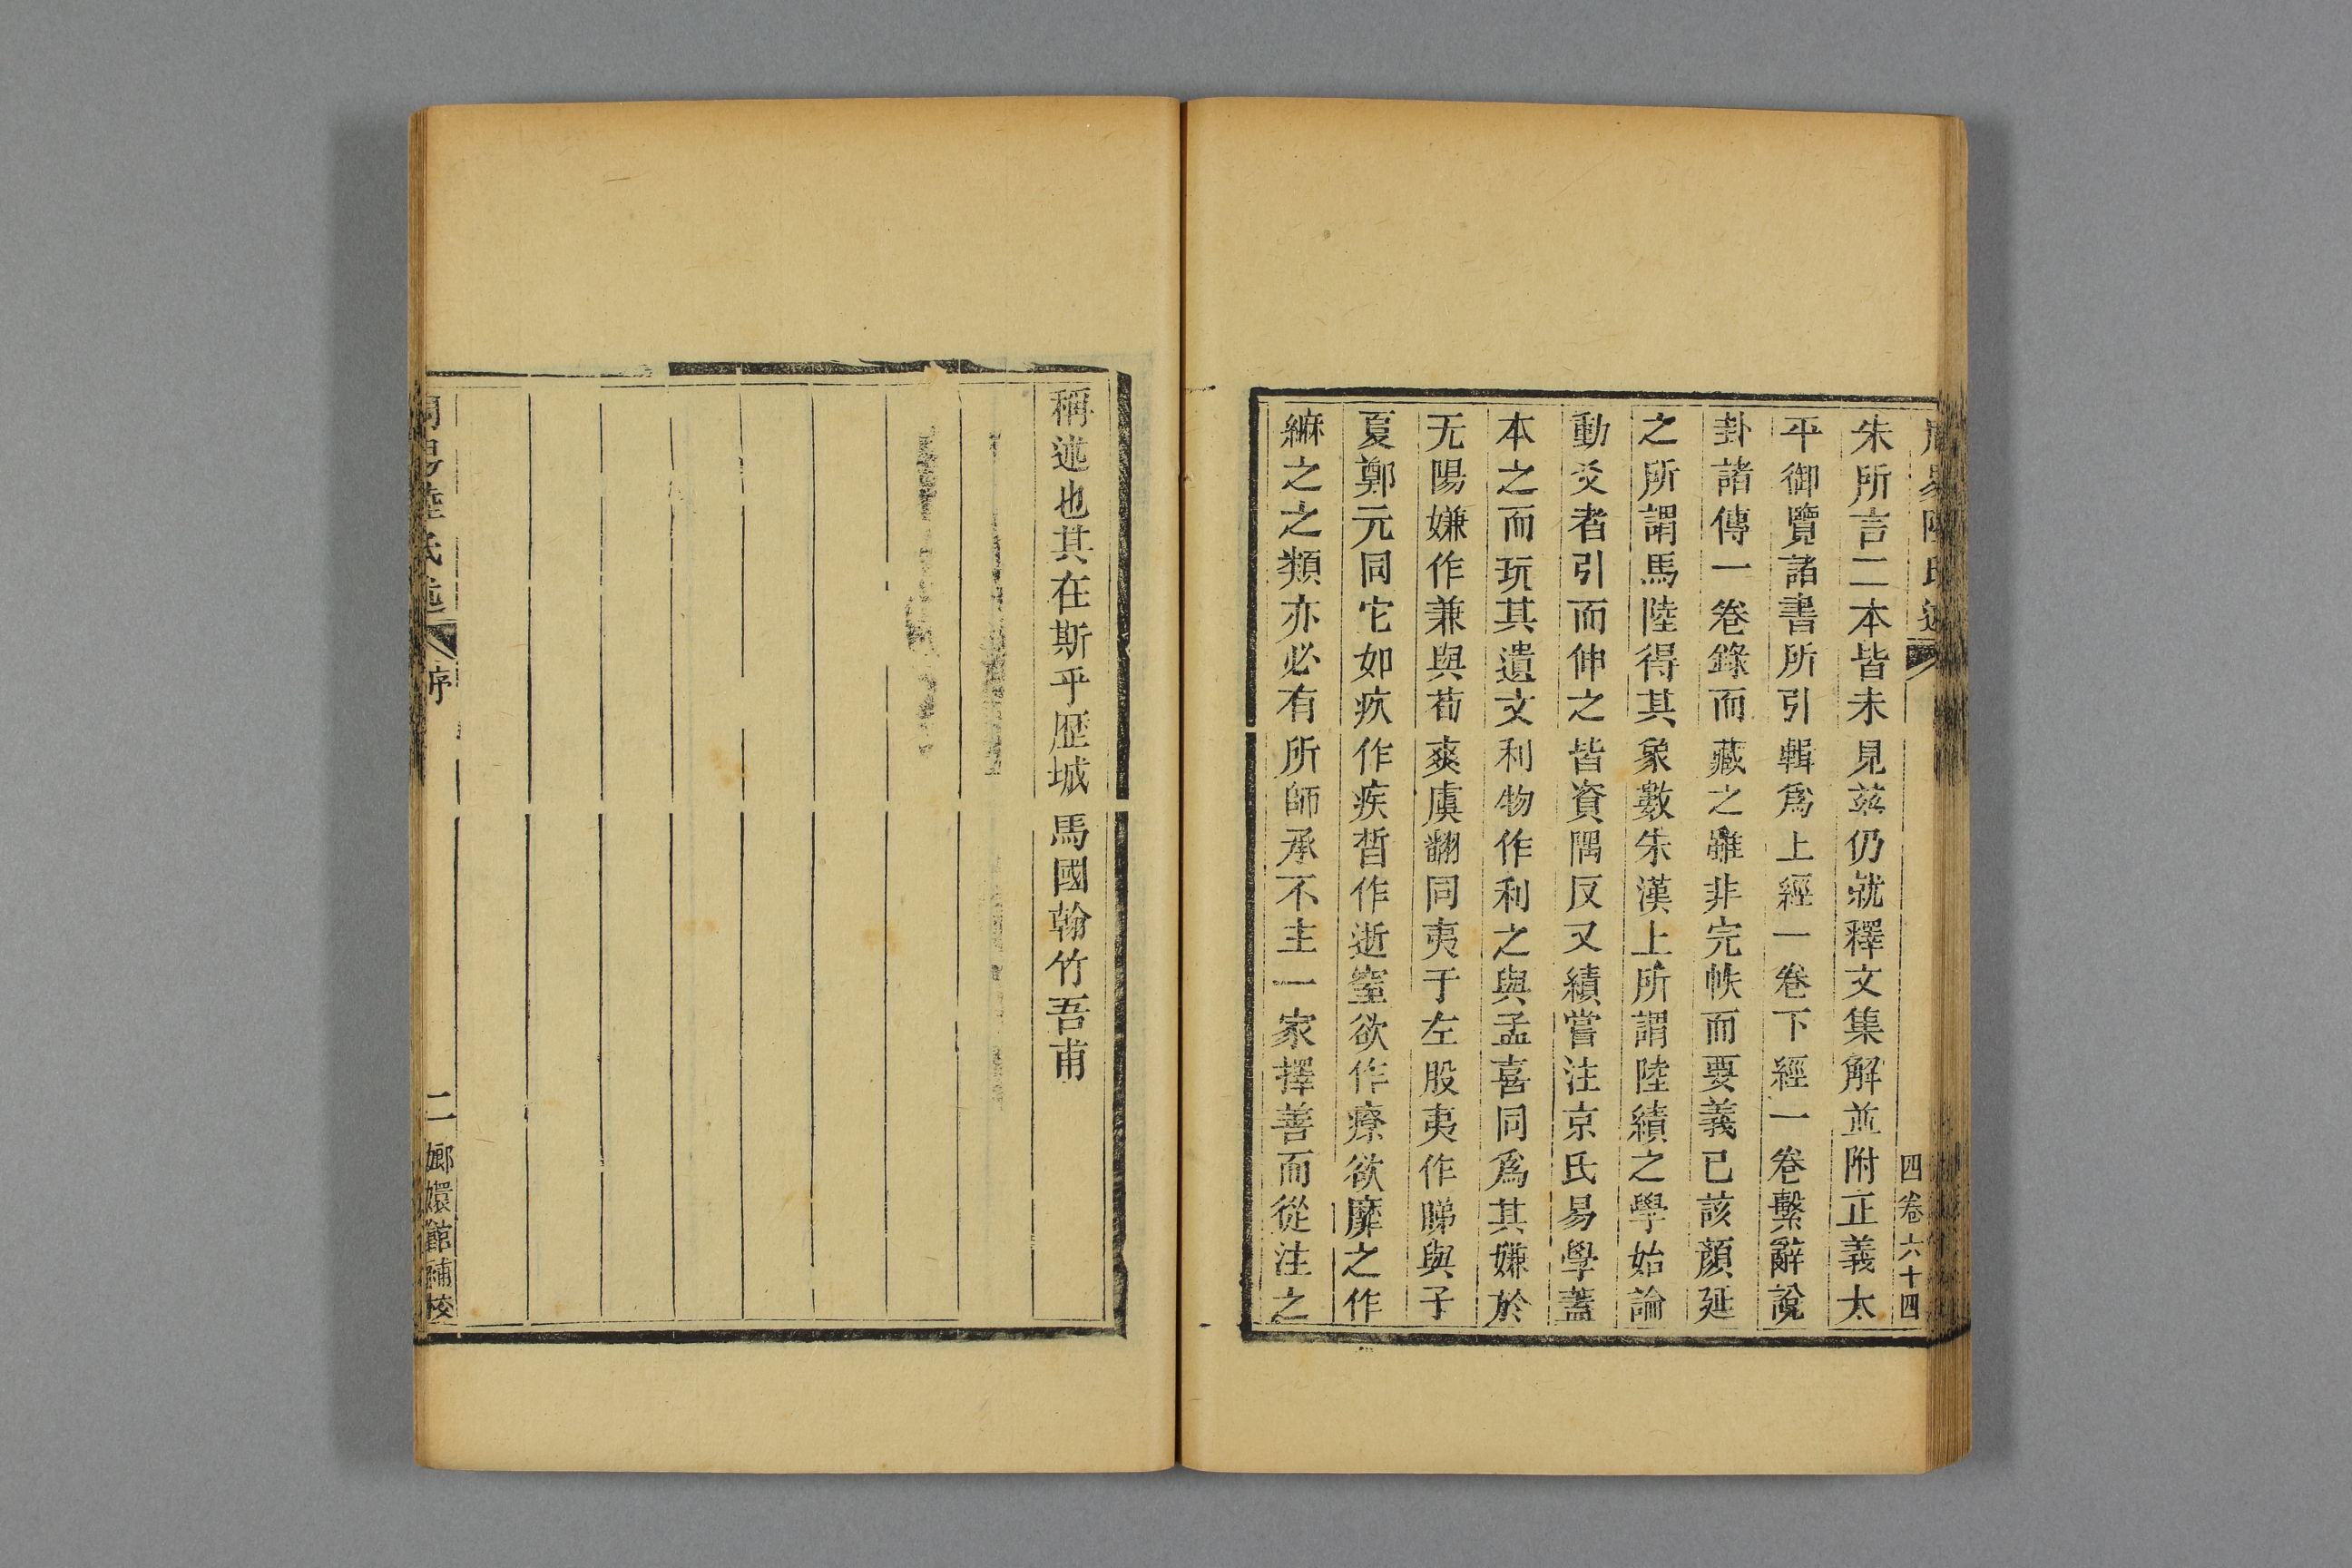 周易陸氏述
四卷六十四
朱所言二本皆未見茲仍就釋文集解並附正義太
平御覽諸書所引輯爲上經一卷下經一卷繫辭說
卦諸傳一卷錄而藏之雖非完帙而要義已該顏延
之所謂馬陸得其象數朱漢上所謂陸績之學始論
動爻者引而伸之皆資隅反又績嘗注京氏易學蓋
本之而玩其遺文利物作利之與孟喜同爲其嫌於
无陽嫌作兼與荀爽虞翻同夷于左股夷作睇與子
夏鄭元同它如疚作疾晢作逝窒欲作𢝋欲靡之作
縻之之類亦必有所師承不主一家擇善而從注之
稱述也其在斯乎歷城馬國翰竹吾甫
周易陸氏述
序
二
嫏嬛館補校